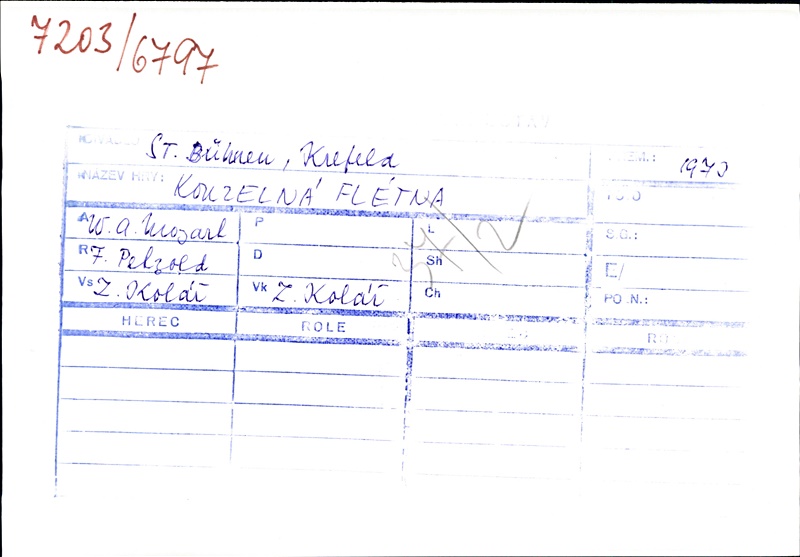 7203/6797
ST. Bühnen, Krefeld 1970
NÁZEV HRY: KOUZELNÁ FLÉTNA
A W. A. Mozart P L S.G.:
R F. Petzold D Sh E/
Vs Z. Kolář Vk Z. Kolář Ch PO.N.:
34/2
HEREC ROLE